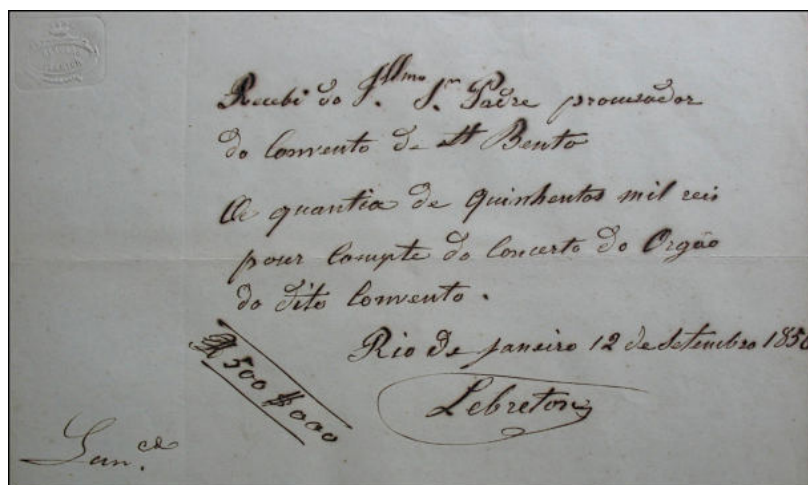 Recebi do Illmo Sr. Padre procurador
do Convento de St Bento
A quantia de quinhentos mil reis
pour Compte do Concerto do Orgão
do dito Convento.
Rio de Janeiro 12 de Setembro 185
R 500$000
Lebreton